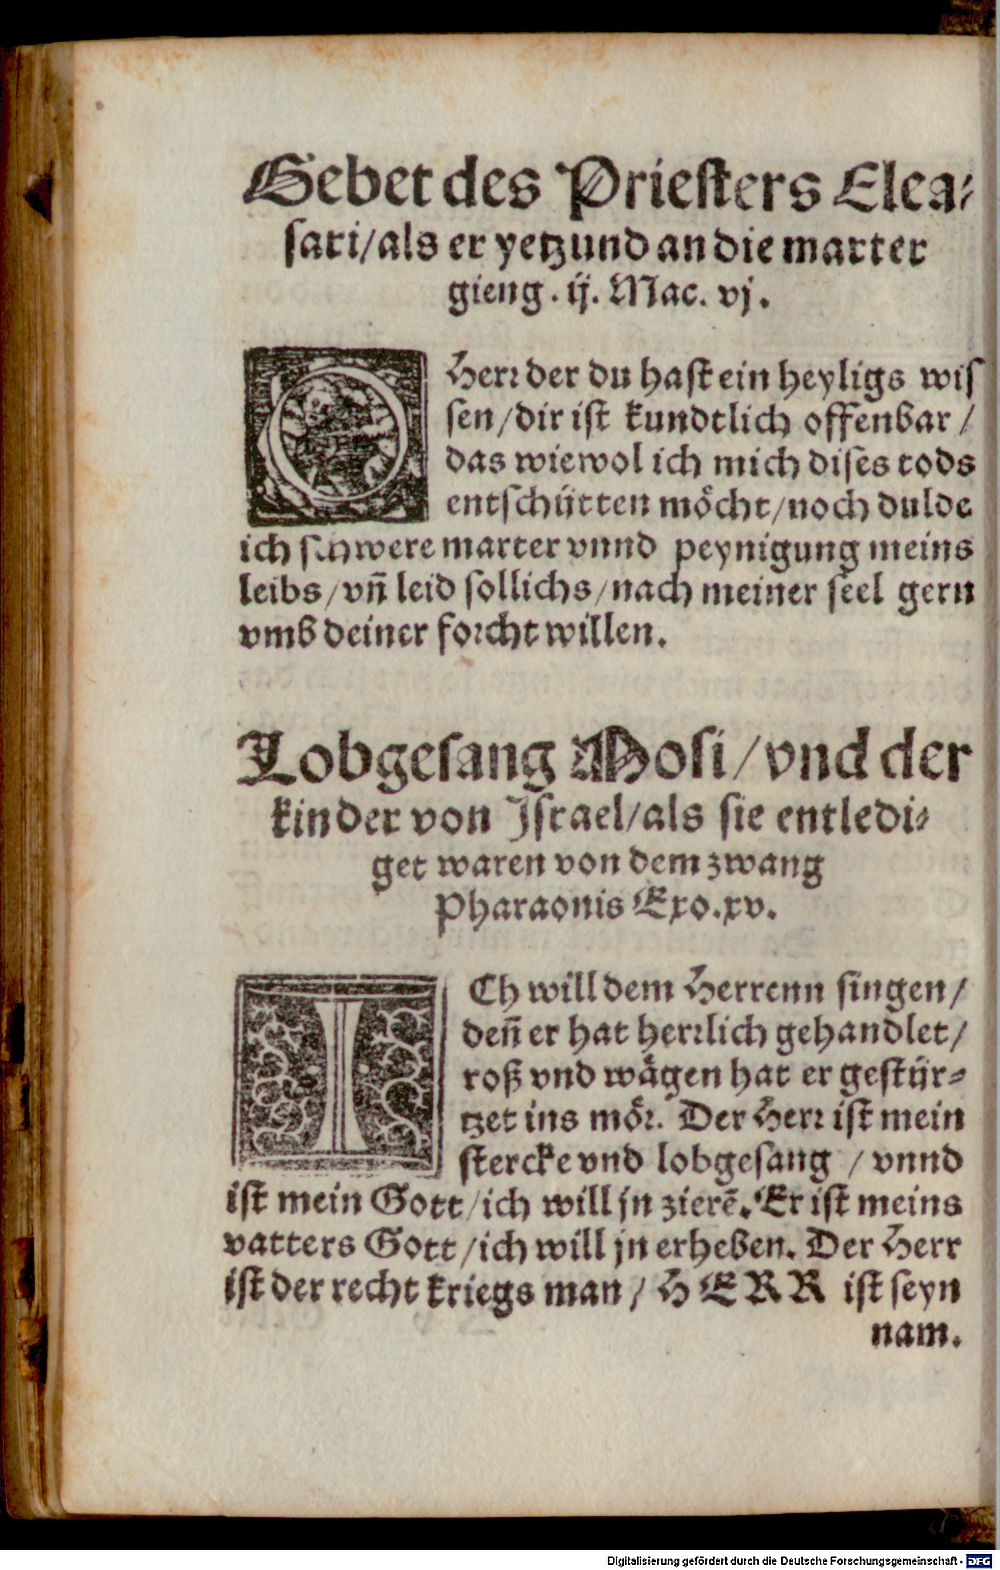 Gebet des Priesters Elea-
sari/als er yetzund an die marter
gieng. ij. Mac. vj.
O Herr der du hast ein heyligs wis
sen/dir ist kundtlich offenbar/
das wiewol ich mich dises tods
entschütten möcht/noch dulde
ich schwere marter vnnd peynigung meins
leibs/vn̄ leid sollichs/nach meiner seel gern
vmb deiner forcht willen.
Lobgesang Mosi/vnd der
kinder von Israel/als sie entledi-
get waren von dem zwang
Pharaonis Exo.xv.
ICh will dem Herrenn singen/
den̄ er hat herrlich gehandlet/
roß vnd wägen hat er gestür-
tzet ins mör. Der Herr ist mein
stercke vnd lobgesang / vnnd
ist mein Gott/ich will jn zierē. Er ist meins
vatters Gott/ich will jn erheben. Der Herr
ist der recht kriegs man / HERR ist seyn
nam.
Digitalisierung gefördert durch die Deutsche Forschungsgemeinschaft - DFG